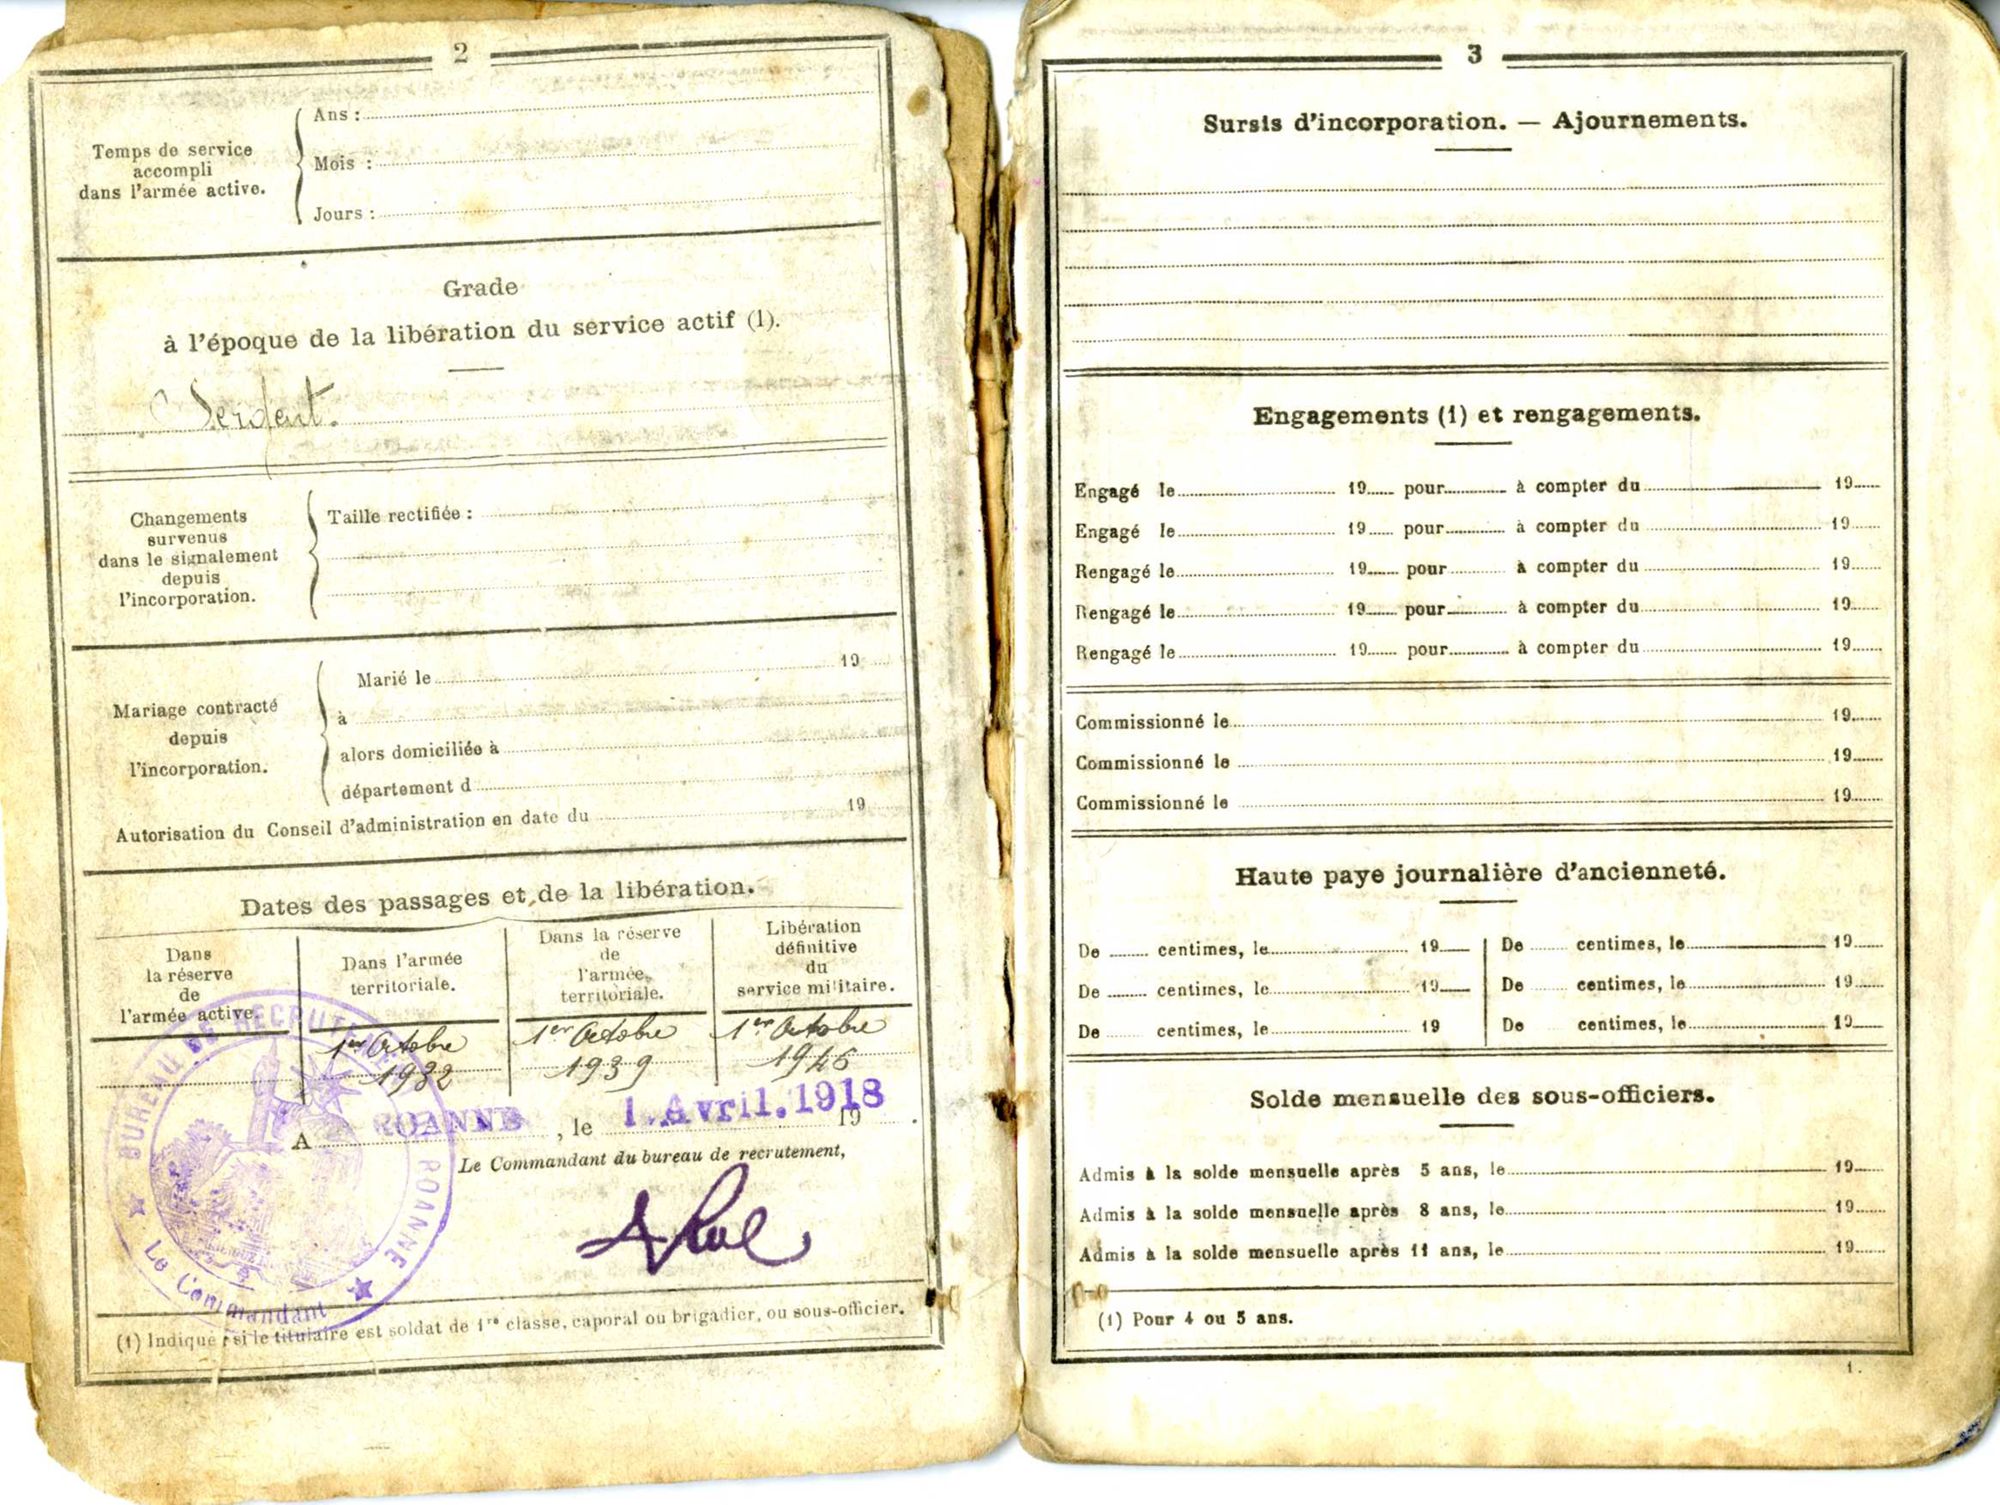 2
Temps de service
accompli
dans l'armée active.
Ans :
Mois :
Jours :
Grade
à l'époque de la libération du service actif (1).
Sergent.
Changements
survenus
dans le signalement
depuis
l'incorporation.
Taille rectifiée :
Mariage contracté
depuis
l'incorporation.
Marié le 19
à
alors domiciliée à
département d
Autorisation du Conseil d'administration en date du 19
Dates des passages et de la libération.
Dans
la réserve
de
l'armée active.
Dans l'armée
territoriale.
1er Octobre
1932
Dans la réserve
de
l'armée
territoriale.
1er Octobre
1939
Libération
définitive
du
service militaire.
1er Octobre
1946
A ROANNE, le 1. Avril. 1918
19 .
Le Commandant du bureau de recrutement,
BUREAU DE RECRUTEMENT
ROANNE
Le Commandant
(1) Indique si le titulaire est soldat de 1re classe, caporal ou brigadier, ou sous-officier.
3
Sursis d'incorporation. — Ajournements.
Engagements (1) et rengagements.
Engagé le 19 pour à compter du 19
Engagé le 19 pour à compter du 19
Rengagé le 19 pour à compter du 19
Rengagé le 19 pour à compter du 19
Rengagé le 19 pour à compter du 19
Commissionné le 19
Commissionné le 19
Commissionné le 19
Haute paye journalière d'ancienneté.
De centimes, le 19 De centimes, le 19
De centimes, le 19 De centimes, le 19
De centimes, le 19 De centimes, le 19
Solde mensuelle des sous-officiers.
Admis à la solde mensuelle après 5 ans, le 19
Admis à la solde mensuelle après 8 ans, le 19
Admis à la solde mensuelle après 11 ans, le 19
(1) Pour 4 ou 5 ans.
1.